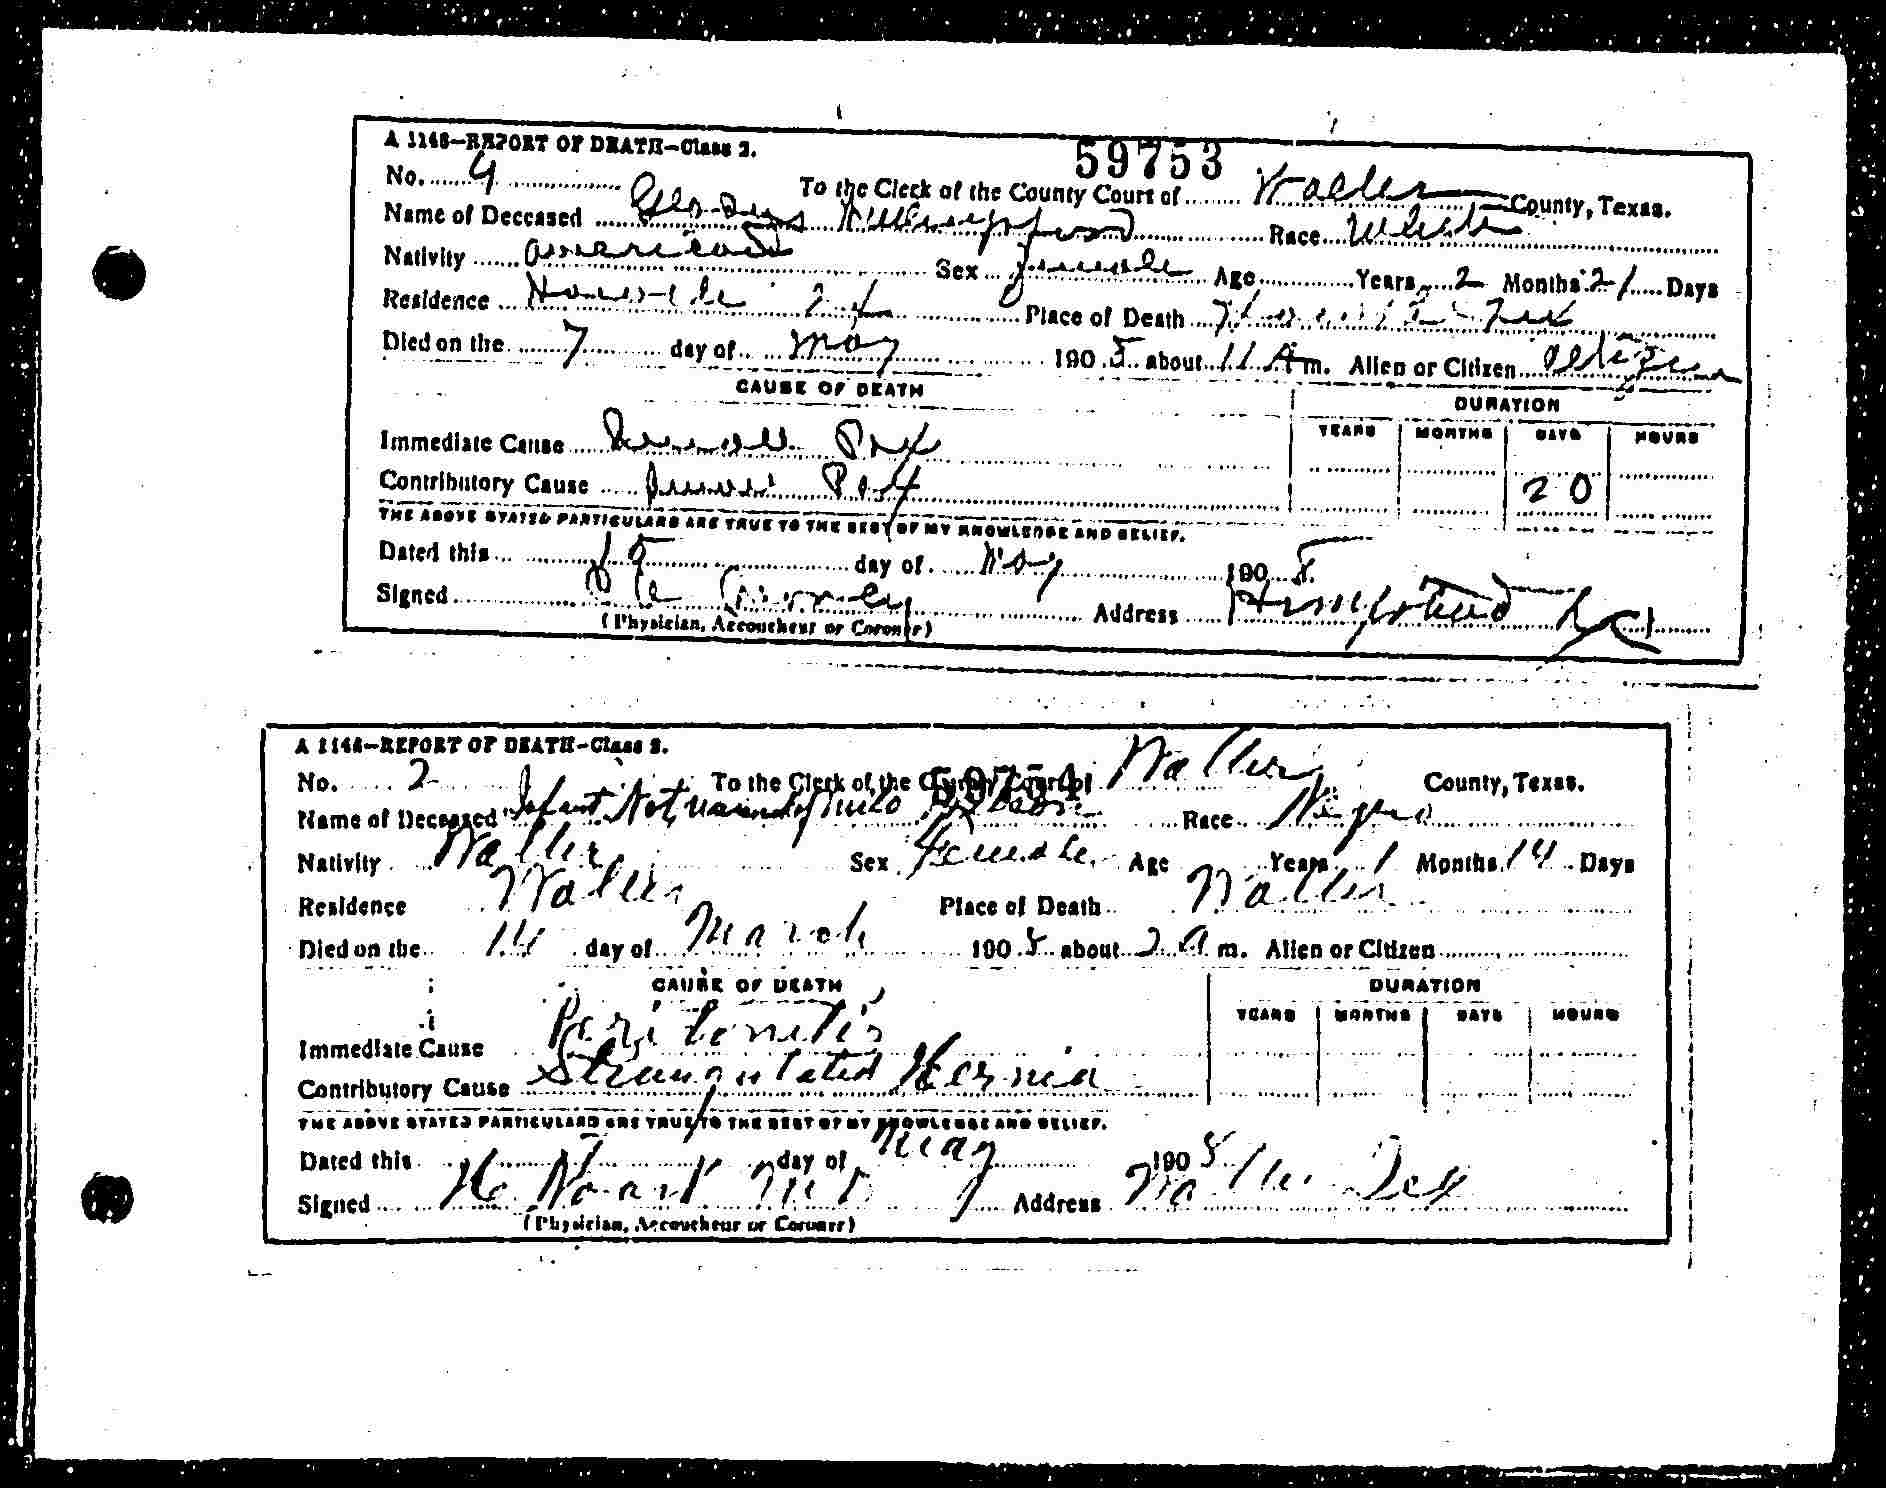 A 1148—REPORT OF DEATH—Class 2.
59753
No. 4 To the Clerk of the County Court of Waller County, Texas.
Name of Deceased Race White
Nativity American Sex Female Age Years 2 Months 21 Days
Residence Place of Death Tex
Died on the 7 day of May 1908 about 11 A m. Alien or Citizen Citizen
CAUSE OF DEATH DURATION
YEARS MONTHS DAYS HOURS
Immediate Cause Small Pox
Contributory Cause Small Pox 20
THE ABOVE STATED PARTICULARS ARE TRUE TO THE BEST OF MY KNOWLEDGE AND BELIEF.
Dated this day of May 1908
Signed Address Hempstead
(Physician, Accoucheur or Coroner)
A 1148—REPORT OF DEATH—Class 2.
No. 2 To the Clerk of the County Court of Waller County, Texas.
59754
Name of Deceased Infant Not named Race Negro
Nativity Waller Sex Female Age Years 1 Months 14 Days
Residence Waller Place of Death Waller
Died on the 14 day of March 1908 about 2 A m. Alien or Citizen
CAUSE OF DEATH DURATION
YEARS MONTHS DAYS HOURS
Immediate Cause Peritonitis
Contributory Cause Strangulated Hernia
THE ABOVE STATED PARTICULARS ARE TRUE TO THE BEST OF MY KNOWLEDGE AND BELIEF.
Dated this day of May 1908
Signed MD Address Waller Tex
(Physician, Accoucheur or Coroner)